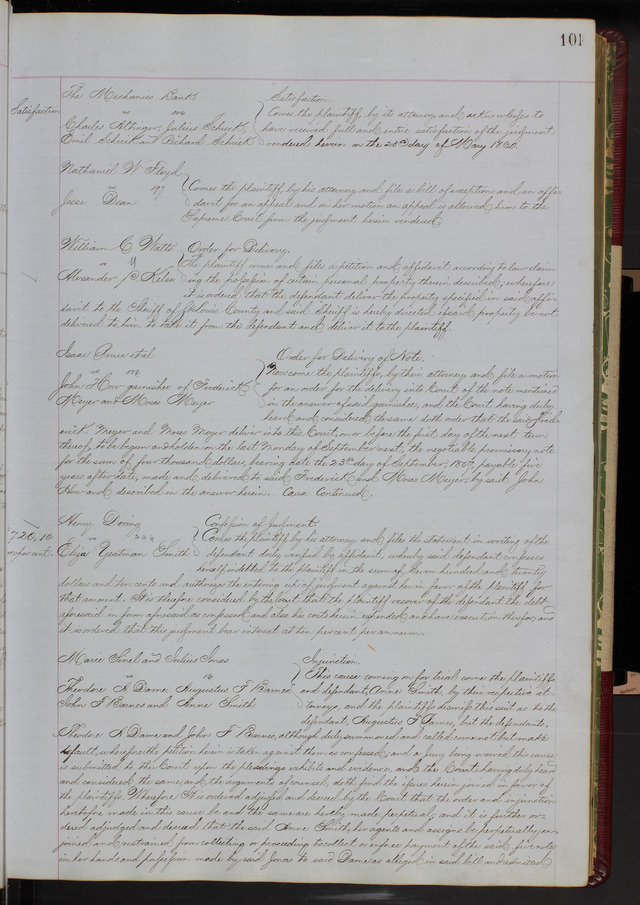 101
The Mechanics Bank
Satisfaction
Satisfaction
vs
Comes the plaintiff, by its attorney and acknowledges to
Charles Schick,
have received full and entire satisfaction of the judgment
Emil Schick and Richard Schick
rendered herein on the 23rd day of May 1860.
Nathaniel W Floyd
vs 197
Comes the plaintiff, by his attorney and files a bill of exceptions and an affi-
Jesse Dean
davit for an appeal and on his motion an appeal is allowed him to the
Supreme Court from the judgment herein rendered
William C Watts
Order for Delivery.
vs
The plaintiff comes and files a petition and affidavit according to law claim
Alexander Kelso
ing the possession of certain personal property therein described, wherefore
it is ordered that the defendant deliver the property specified in said affi-
davit to the Sheriff of St Louis County and said Sheriff is hereby directed if said property be not
delivered to him to take it from the defendant and deliver it to the plaintiff.
Isaac et al
Order for Delivery of Note.
vs
Now come the plaintiffs, by their attorney and file a motion
John How garnishee of Frederick
for an order for the delivery into Court of the note mentioned
Meyer and Moses Meyer
in the answer of said garnishee, and the Court having duly
heard and considered the same doth order that the said Fred-
erick Meyer and Moses Meyer deliver into this Court, on or before the first day of the next term
thereof, to be begun and holden on the last Monday of September next, the negotiable promissory note
for the sum of four thousand dollars, bearing date the 23rd day of September, payable five
years after date, made and delivered to said Frederick and Moses Meyer, by said John
How and described in the answer herein. Cause Continued.
Henry Doring
Confession of Judgment.
720,10
vs
Comes the plaintiff, by his attorney and files the statement in writing of the
per cent.
Eliza Yeatman Smith
defendant duly verified by affidavit, whereby said defendant confesses
herself indebted to the plaintiff in the sum of Seven hundred and twenty
dollars and ten cents and authorizes the entering up of judgment against her in favor of the plaintiff for
that amount. It is therefore considered by the Court that the plaintiff recover of the defendant the debt
aforesaid in form aforesaid as confessed and also his costs herein expended and have execution therefor, and
it is ordered that this judgment bear interest at ten per cent per annum.
Marie and Julius Jonas
Injunction.
vs
This cause coming on for trial come the plaintiffs
Theodore A Dame, Augustus F Barnes
and defendant Anne Smith, by their respective at-
John F Barnes and Anne Smith
torneys, and the plaintiffs dismiss this suit as to the
defendant, Augustus F Barnes, but the defendants,
Theodore A Dame and John F Barnes, although duly summoned and called come not but make
default, wherefore the petition herein is taken against them as confessed, and a jury being waived the cause
is submitted to the Court upon the pleadings exhibits and evidence, and the Court having duly heard
and considered the same, and the arguments of counsel, doth find the issues herein joined in favor of
the plaintiffs. Wherefore It is ordered adjudged and decreed by the Court that the order and injunction
heretofore made in this cause be and the same are hereby made perpetual; and it is further or-
dered adjudged and decreed that the said Anne Smith, her agents and assigns be perpetually en-
joined and restrained from collecting or proceeding to collect or enforce payment of the said five note
in her hands and possession made by said Jonas to said Dame as alleged in said bill and admitted